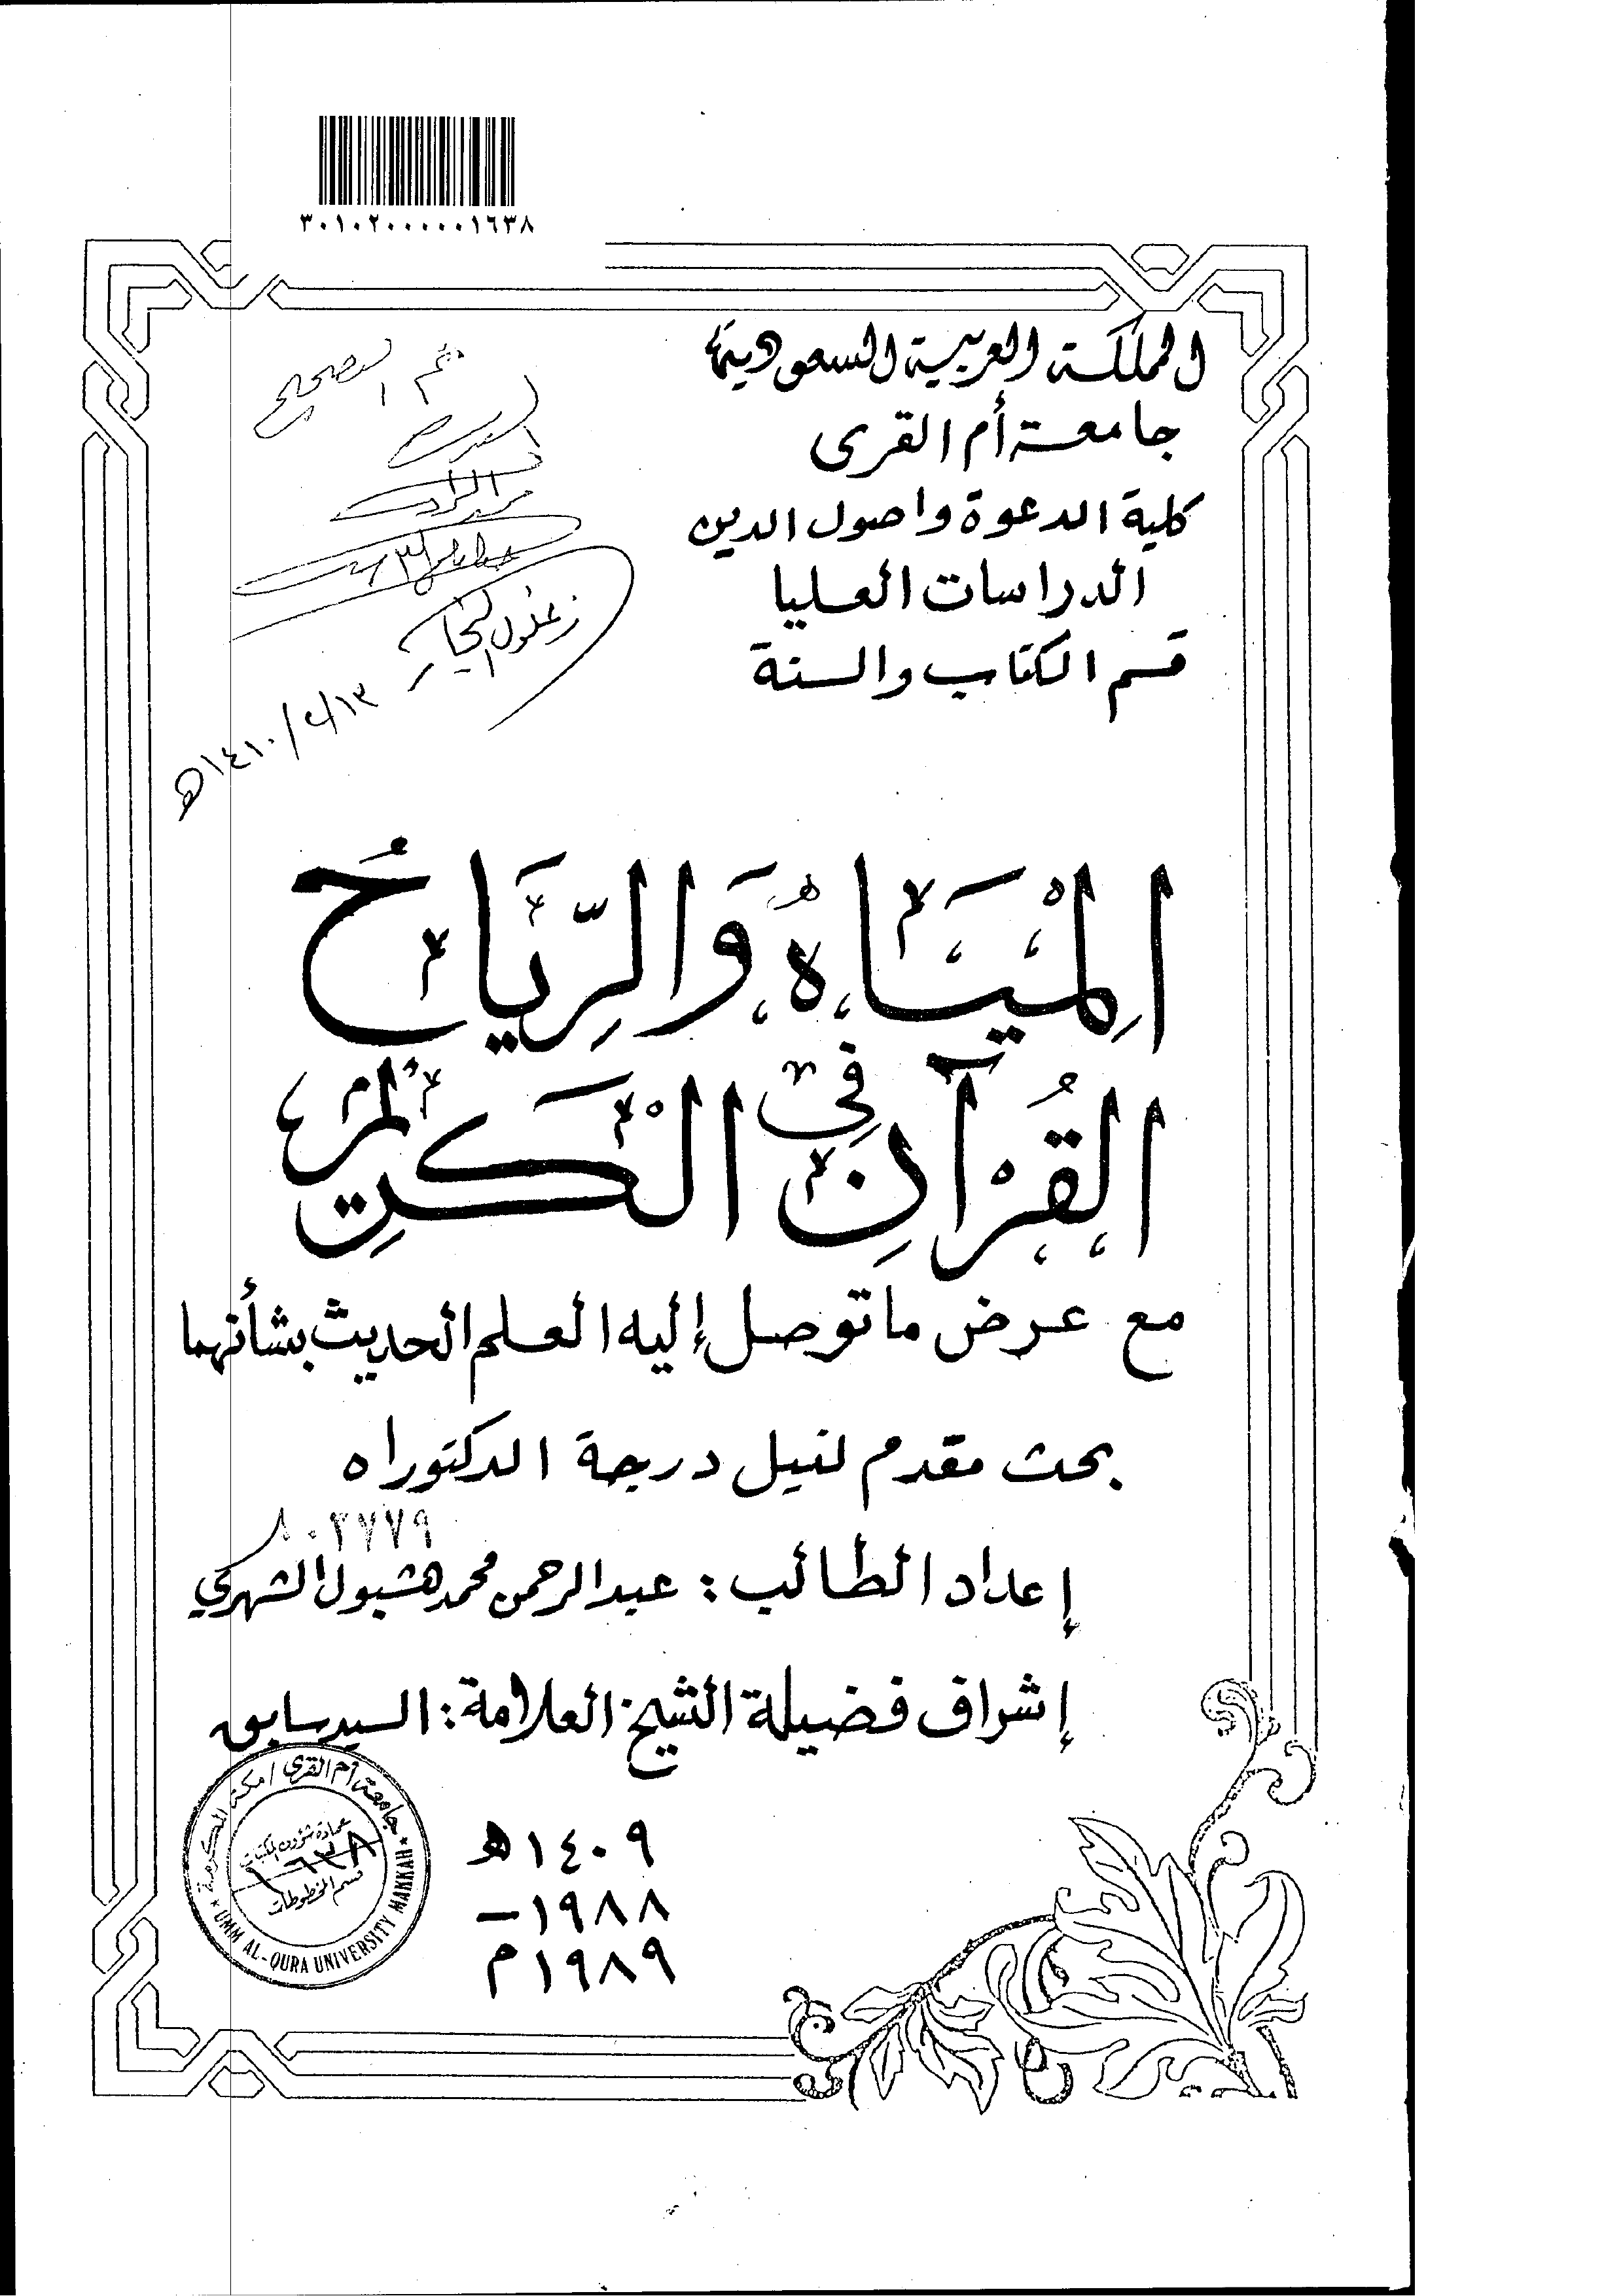 ٣٠١٠٢٠٠٠٠٠١٦٣٨
المملكة العربية السعودية
جامعة أم القرى
كلية الدعوة واصول الدين
الدراسات العليا
قسم الكتاب والسنة
تم التصحيح
زغلول النجار
١٤١٠/٤/١٣هـ
الْمِيَاهُ وَالرِّيَاحُ
فِي
القُرْآنِ الْكَرِيم
مع عرض ماتوصل إليه العلم الحديث بشأنهما
بحث مقدم لنيل درجة الدكتوراه
٨٠٢٧٧٩
إعداد الطالب : عبدالرحمن محمد هشبول الشهري
إشراف فضيلة الشيخ العلامة : السيد سابق
١٤٠٩ هـ
١٩٨٨ –
١٩٨٩ م
جامعة أم القرى / مكة المكرمة
عمادة شؤون المكتبات
١٦٣٨
قسم المخطوطات
UMM AL-QURA UNIVERSITY MAKKAH